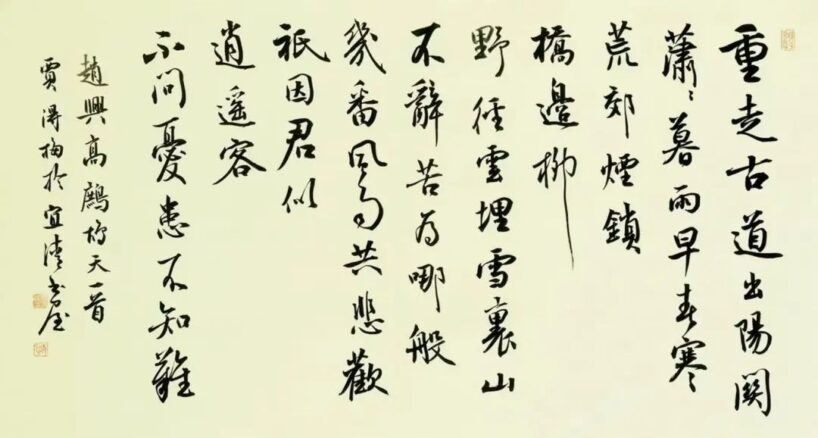 重走古道出陽關
蕭〻暮雨早春寒
荒郊煙鎖
橋邊柳
野徑雲埋雪裏山
不辭苦為哪般
幾番風雨共悲歡
祇因君似
逍遥客
不問憂患不知難
趙興高鷓鴣天一首
賈得梅於宜清書屋